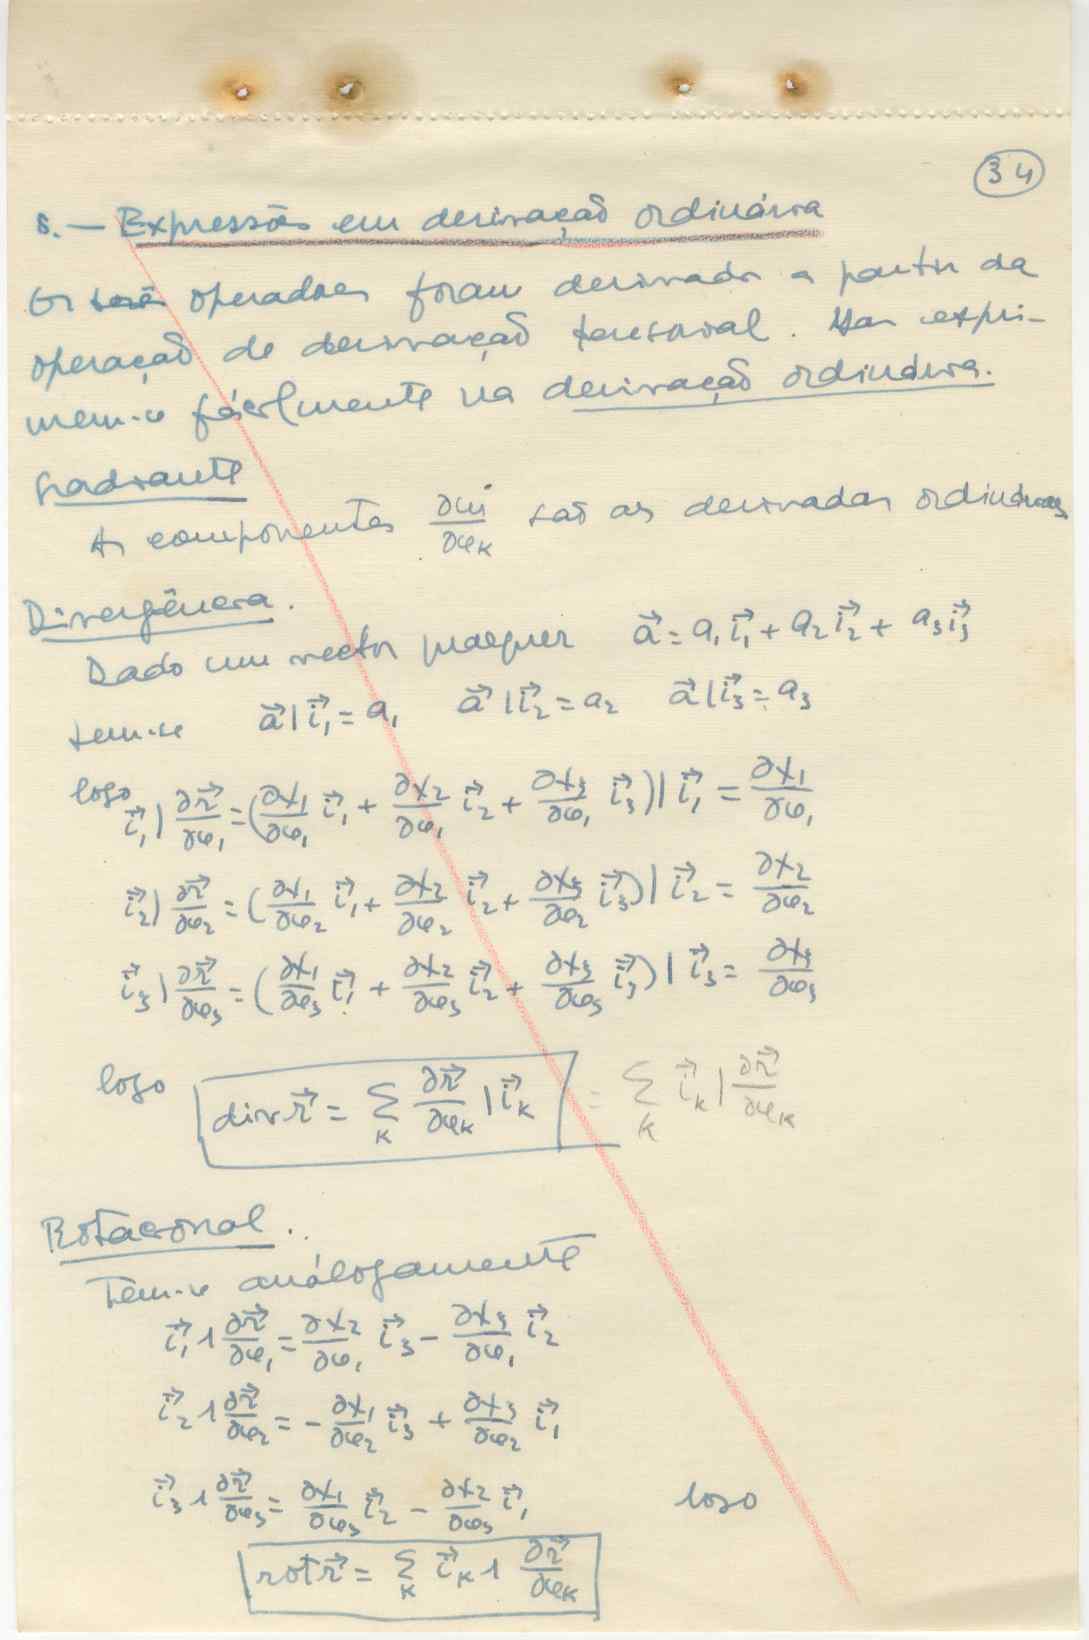 34
8. — Expressões em derivação ordinária
Os operadores foram derivados a partir da
operação de derivação tensorial. Mas expri-
mem-se fàcilmente na derivação ordinária.
Gradiente
As componentes ∂u/∂φₖ são as derivadas ordinárias
Divergência.
Dado um vector qualquer a⃗ = a₁i⃗₁ + a₂i⃗₂ + a₃i⃗₃
tem-se a⃗|i⃗₁ = a₁ a⃗|i⃗₂ = a₂ a⃗|i⃗₃ = a₃
logo
i⃗₁|∂r⃗/∂φ₁ = (∂x₁/∂φ₁ i⃗₁ + ∂x₂/∂φ₁ i⃗₂ + ∂x₃/∂φ₁ i⃗₃)|i⃗₁ = ∂x₁/∂φ₁
i⃗₂|∂r⃗/∂φ₂ = (∂x₁/∂φ₂ i⃗₁ + ∂x₂/∂φ₂ i⃗₂ + ∂x₃/∂φ₂ i⃗₃)|i⃗₂ = ∂x₂/∂φ₂
i⃗₃|∂r⃗/∂φ₃ = (∂x₁/∂φ₃ i⃗₁ + ∂x₂/∂φ₃ i⃗₂ + ∂x₃/∂φ₃ i⃗₃)|i⃗₃ = ∂x₃/∂φ₃
logo div r⃗ = Σₖ ∂r⃗/∂φₖ|i⃗ₖ = Σₖ i⃗ₖ|∂r⃗/∂φₖ
Rotacional.
Tem-se anàlogamente
i⃗₁∧∂r⃗/∂φ₁ = ∂x₂/∂φ₁ i⃗₃ − ∂x₃/∂φ₁ i⃗₂
i⃗₂∧∂r⃗/∂φ₂ = −∂x₁/∂φ₂ i⃗₃ + ∂x₃/∂φ₂ i⃗₁
i⃗₃∧∂r⃗/∂φ₃ = ∂x₁/∂φ₃ i⃗₂ − ∂x₂/∂φ₃ i⃗₁ logo
rot r⃗ = Σₖ i⃗ₖ∧∂r⃗/∂φₖ